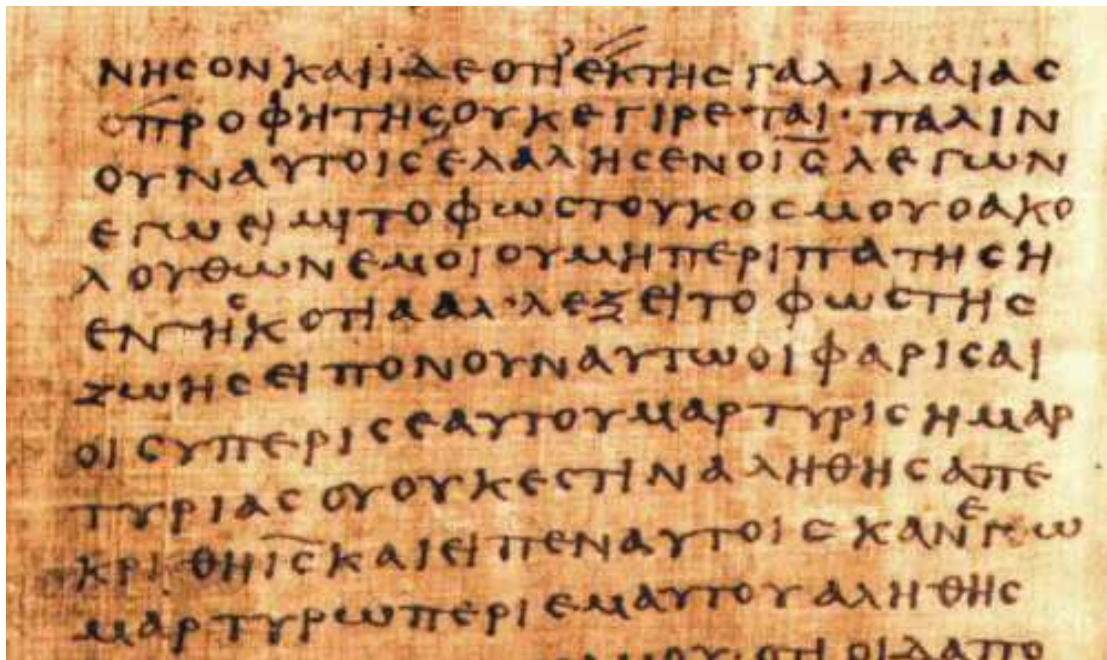 ΝΗϹΟΝΚΑΙΪΔΕΟΤΙΕΚΤΗϹΓΑΛΙΛΑΙΑϹ
ΟΠΡΟΦΗΤΗϹΟΥΚΕΓΙΡΕΤΑΙ·ΠΑΛΙΝ
ΟΥΝΑΥΤΟΙϹΕΛΑΛΗϹΕΝΟΙ̅Ϲ̅ΛΕΓΩΝ
ΕΓΩΕΙΜΙΤΟΦΩϹΤΟΥΚΟϹΜΟΥΟΑΚΟ
ΛΟΥΘΩΝΕΜΟΙΟΥΜΗΠΕΡΙΠΑΤΗϹΗ
ΕΝΤΗϹΚΟΤΙΑΑΛ·ΛΕΞΕΙΤΟΦΩϹΤΗϹ
ΖΩΗϹΕΙΠΟΝΟΥΝΑΥΤΩΟΙΦΑΡΙϹΑΙ
ΟΙϹΥΠΕΡΙϹΕΑΥΤΟΥΜΑΡΤΥΡΙϹΗΜΑΡ
ΤΥΡΙΑϹΟΥΟΥΚΕϹΤΙΝΑΛΗΘΗϹΑΠΕ
ΚΡΙΘΗΙ̅Ϲ̅ΚΑΙΕΙΠΕΝΑΥΤΟΙϹΚΑΝΕΓΩ
ΜΑΡΤΥΡΩΠΕΡΙΕΜΑΥΤΟΥΑΛΗΘΗϹ
ΜΟΥ·ΟΤΙΟΙΔΑΠΟ